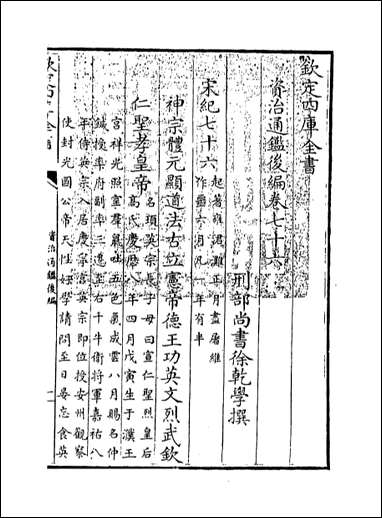 欽定四庫全書
資治通鑑後編卷七十六
刑部尚書徐乾學撰
宋紀七十六
起著雍涒灘正月盡屠維
作噩六月凡一年有半
神宗體元顯道法古立憲帝德王功英文烈武欽
仁聖孝皇帝
名頊英宗長子母曰宣仁聖烈皇后
高氏慶曆八年四月戊寅生于濮王
宮祥光照室羣鼠吐五色氣成雲八月賜名仲
鍼授率府副率三遷至右千牛衛將軍嘉祐八
年侍英宗入居慶寧宮英宗即位授安州觀察
使封光國公帝天性好學請問至日晏忘食英
欽定四庫全書
資治通鑑後編
一